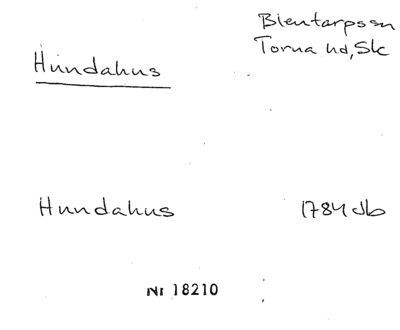 Blentarps sn
Torna hd, Sk
Hundahus
Hundahus 1784 Jb
Nr 18210